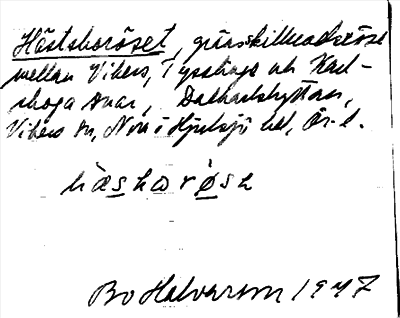 Hästskoröset, gränsskillnadsröse
mellan Vikers, Tysslinge och Karl-
skoga snar, Dalkarlshyttan,
Vikers sn, Nora i Hjulsjö
hæskarösu
Bo Halvarsson 1947